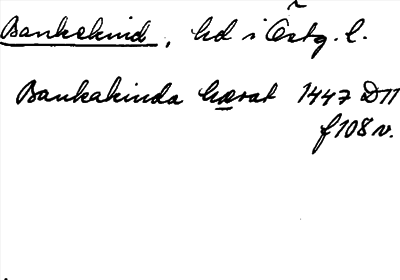 Bankekind, hd i Östg.l.
Bankakinda hærat 1447 D11
f 108 v.